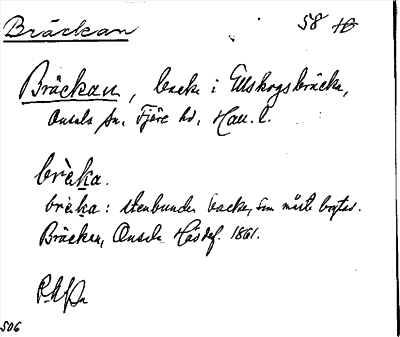 Bräckan 58
Bräckan, backe i Ullskogsbräcka,
Onsala sn, Fjäre hd, Hall. l.
brɛ̀ka.
brɛ̀ka: stenbunden backe, som måste brytas.
Bräckan, Onsala 1861.
506